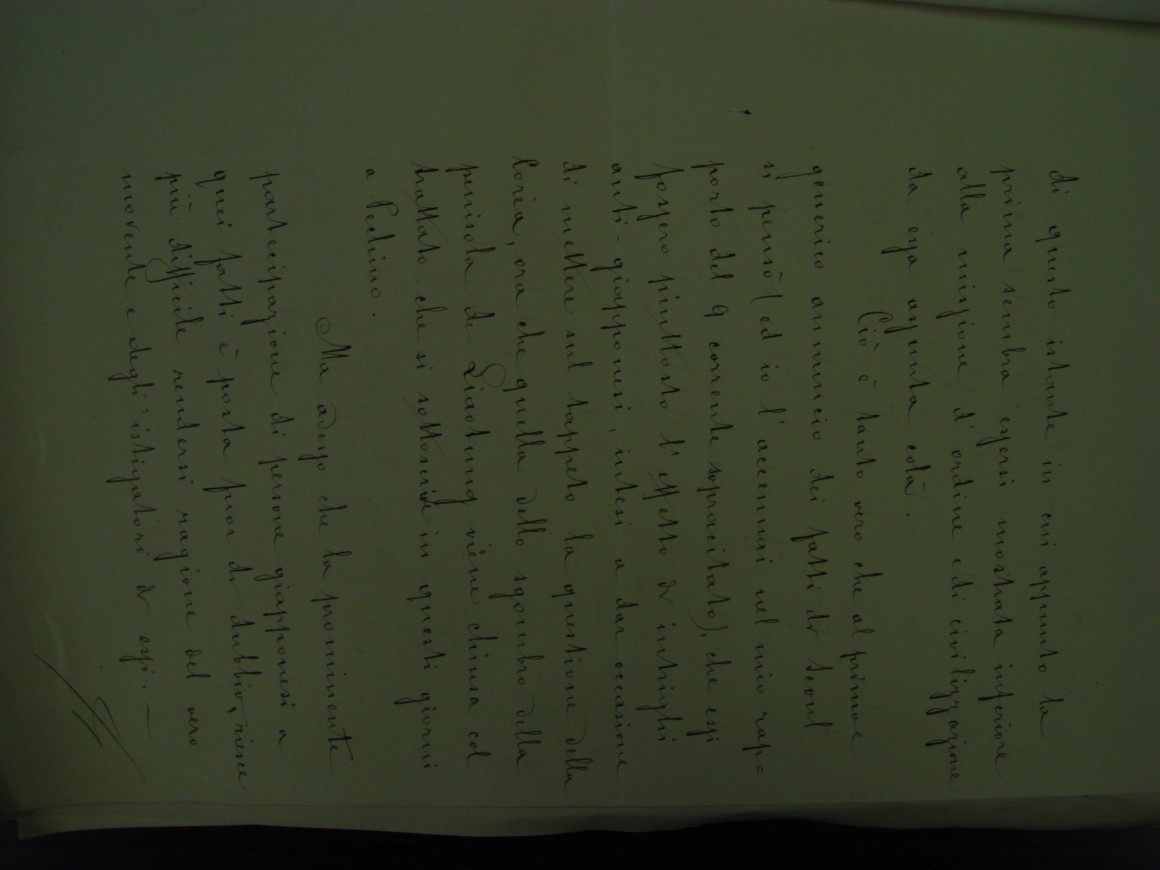 di questo istante in cui appunto la
prima sembra essersi mostrata inferiore
alla missione d'ordine e di civilizzazione
da essa assunta colà.
Ciò è tanto vero che al primo e
generico annuncio dei fatti di Seoul
si pensò (ed io l'accennai nel mio rap=
porto del 9 corrente sopracitato), che essi
fossero piuttosto l'effetto di intrighi
anti-giapponesi, intesi a dar occasione
di mettere sul tappeto la questione della
Corèa, ora che quella dello sgombro della
penisola di Liaotung viene chiusa col
trattato che si sottoscrive in questi giorni
a Pechino.
Ma adesso che la prominente
partecipazione di persone giapponesi a
quei fatti è posta fuor di dubbio, riesce
più difficile rendersi ragione del vero
movente e degli istigatori di essi. —